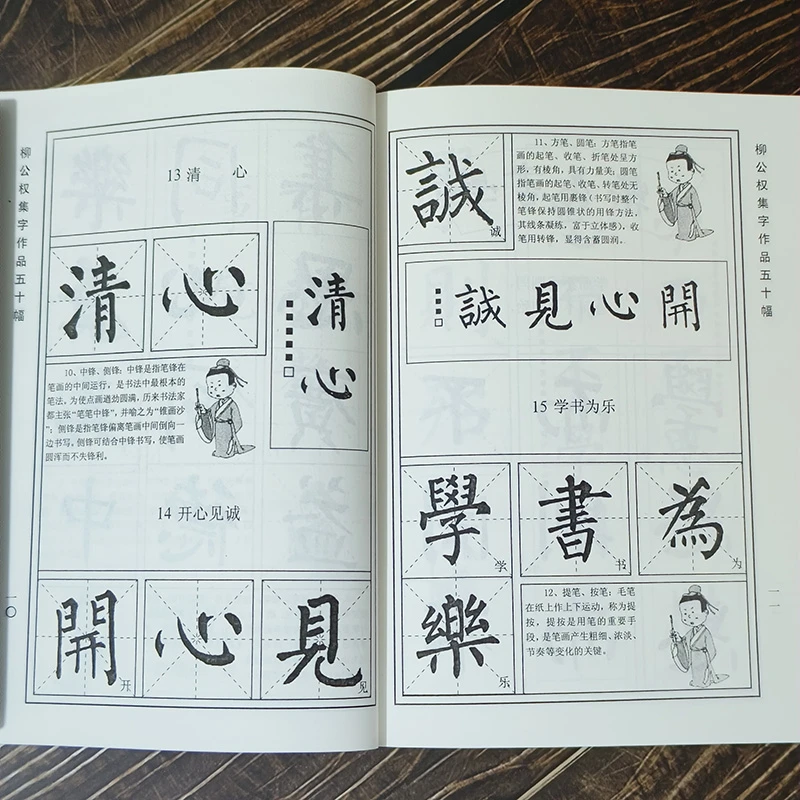 柳公权集字作品五十幅
13 清 心
清 心
清心
10、中锋、侧锋：中锋是指笔锋在
笔画的中间运行，是书法中最根本的
笔法，为使点画遒劲圆满，历来书法家
都主张“笔笔中锋”，并喻之为“锥画沙
”；侧锋是指笔锋偏离笔画中间倒向一
边书写。侧锋可结合中锋书写，使笔画
圆浑而不失锋利。
14 开心见诚
開 心 見
开 见
一〇
誠
诚
11、方笔、圆笔：方笔指笔
画的起笔、收笔、折笔处呈方
形，有棱角，具有力量美；圆笔
指笔画的起笔、收笔、转笔处无
棱角，起笔用裹锋（书写时整个
笔锋保持圆锥状的用锋方法，
其线条凝练，富于立体感），收
笔用转锋，显得含蓄圆润。
誠見心開
15 学书为乐
學 書 為
学 书 为
樂
乐
12、提笔、按笔：毛笔
在纸上作上下运动，称为提
按，提按是用笔的重要手
段，是笔画产生粗细、浓淡、
节奏等变化的关键。
柳公权集字作品五十幅
一一